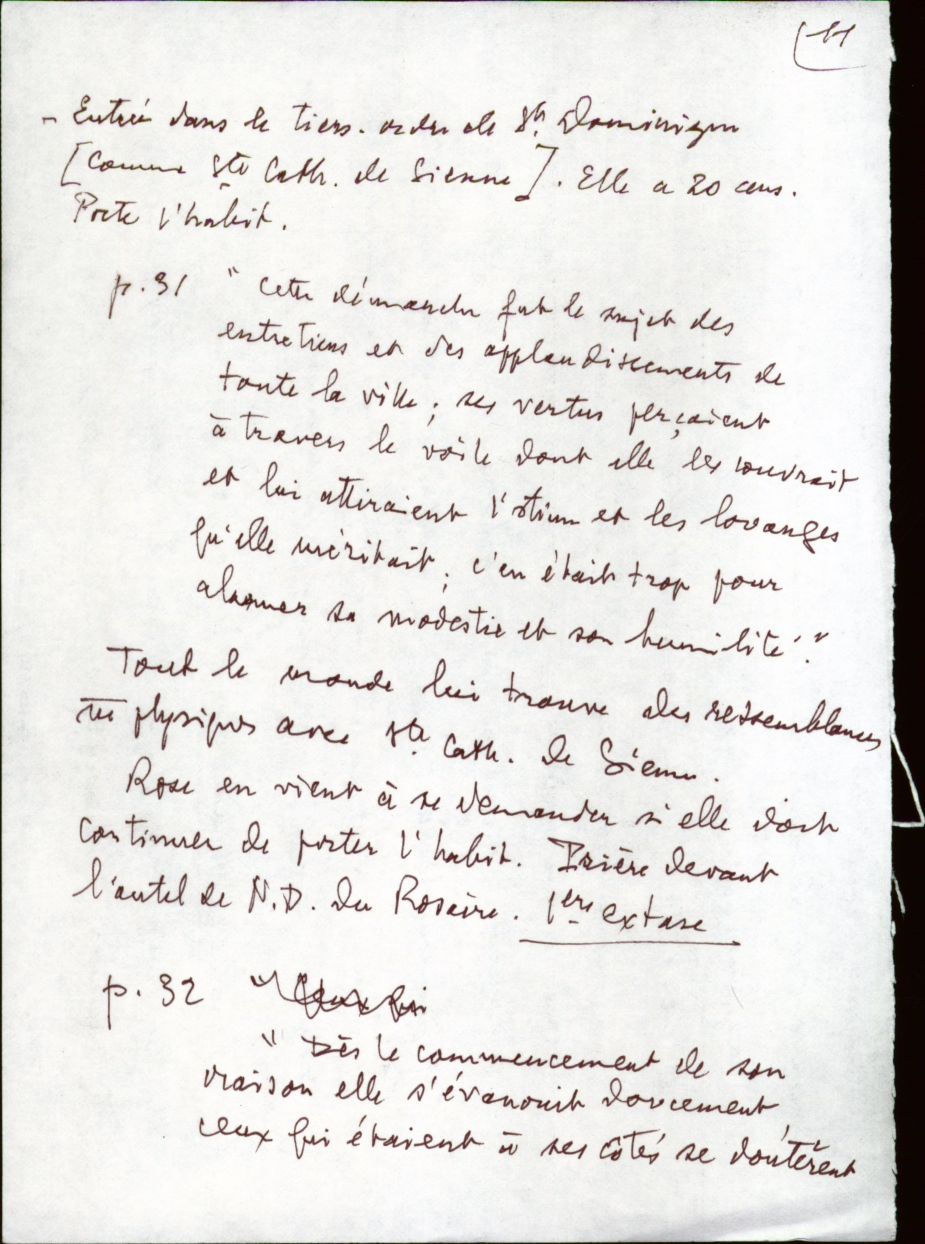 11
- Entrée dans le tiers-ordre de St. Dominique
[Comme Ste Cath. de Sienne]. Elle a 20 ans.
Porte l'habit.
p. 31 " Cette démarche fut le sujet des
entretiens et des applaudissements de
toute la ville ; ses vertus perçaient
à travers le voile dont elle les couvrait
et lui attiraient l'estime et les louanges
qu'elle méritait ; c'en était trop pour
alarmer sa modestie et son humilité."
Tout le monde lui trouve des ressemblances
physiques avec Ste. Cath. de Sienne.
Rose en vient à se demander si elle doit
continuer de porter l'habit. Prière devant
l'autel de N.D. du Rosaire. 1ère extase
p. 32 " Ceux qui
" Dès le commencement de son
oraison elle s'évanouit doucement
ceux qui étaient à ses côtés se doutèrent